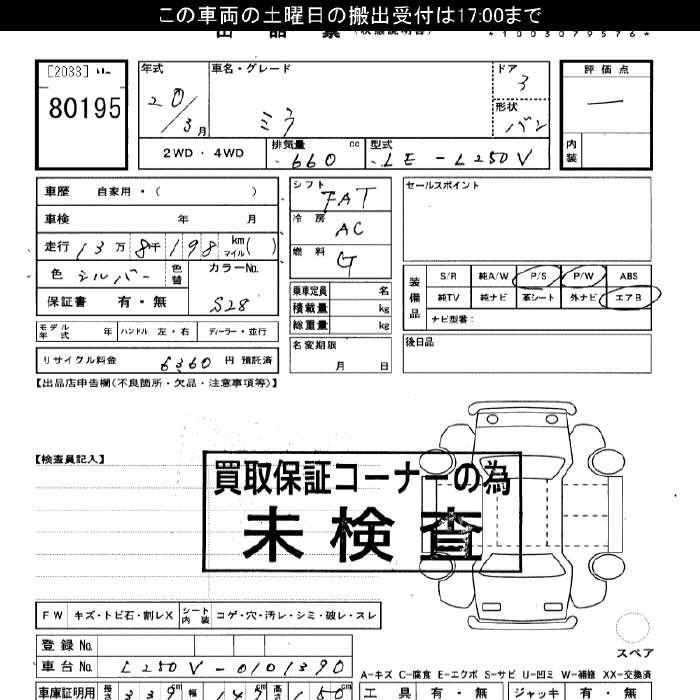 この車両の土曜日の搬出受付は17:00まで
*1003079576*
[2033]
80195
年式 20/3月
車名・グレード ミラ
ドア 3
形状 バン
評価点 —
内装
2WD・4WD
排気量 660 cc
型式 LE-L250V
車歴 自家用・( )
車検 年 月
走行 13万8千198 km マイル( )
色 シルバー 色替 カラーNo. S28
保証書 有・無
モデル年式 年 ハンドル 左・右 ディーラー・並行
リサイクル料金 6,360 円 預託済
シフト FAT
冷房 AC
燃料 G
乗車定員 名
積載量 kg
総重量 kg
名変期限 月 日
セールスポイント
装備品 S/R 純A/W P/S P/W ABS
純TV 純ナビ 革シート 外ナビ エアB
ナビ型番:
後日品
【出品店申告欄(不良箇所・欠品・注意事項等)】
【検査員記入】
買取保証コーナーの為
未検査
FW キズ・トビ石・割レX シート内装 コゲ・穴・汚レ・シミ・破レ・スレ
スペア
登録No.
車台No. L250V-0101390
A-キズ C-腐食 E-エクボ S-サビ U-凹ミ W-補修 XX-交換済
車庫証明用 長さ 339cm 幅 147cm 高さ 150cm
工具 有・無 ジャッキ 有・無